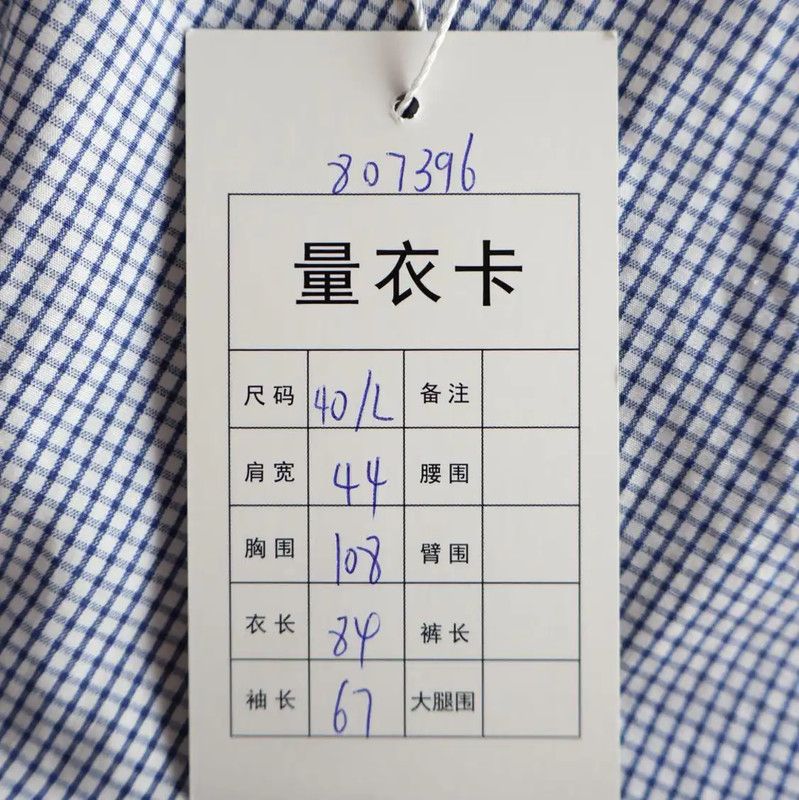 807396
量衣卡
尺码 40/L 备注
肩宽 44 腰围
胸围 108 臂围
衣长 84 裤长
袖长 67 大腿围